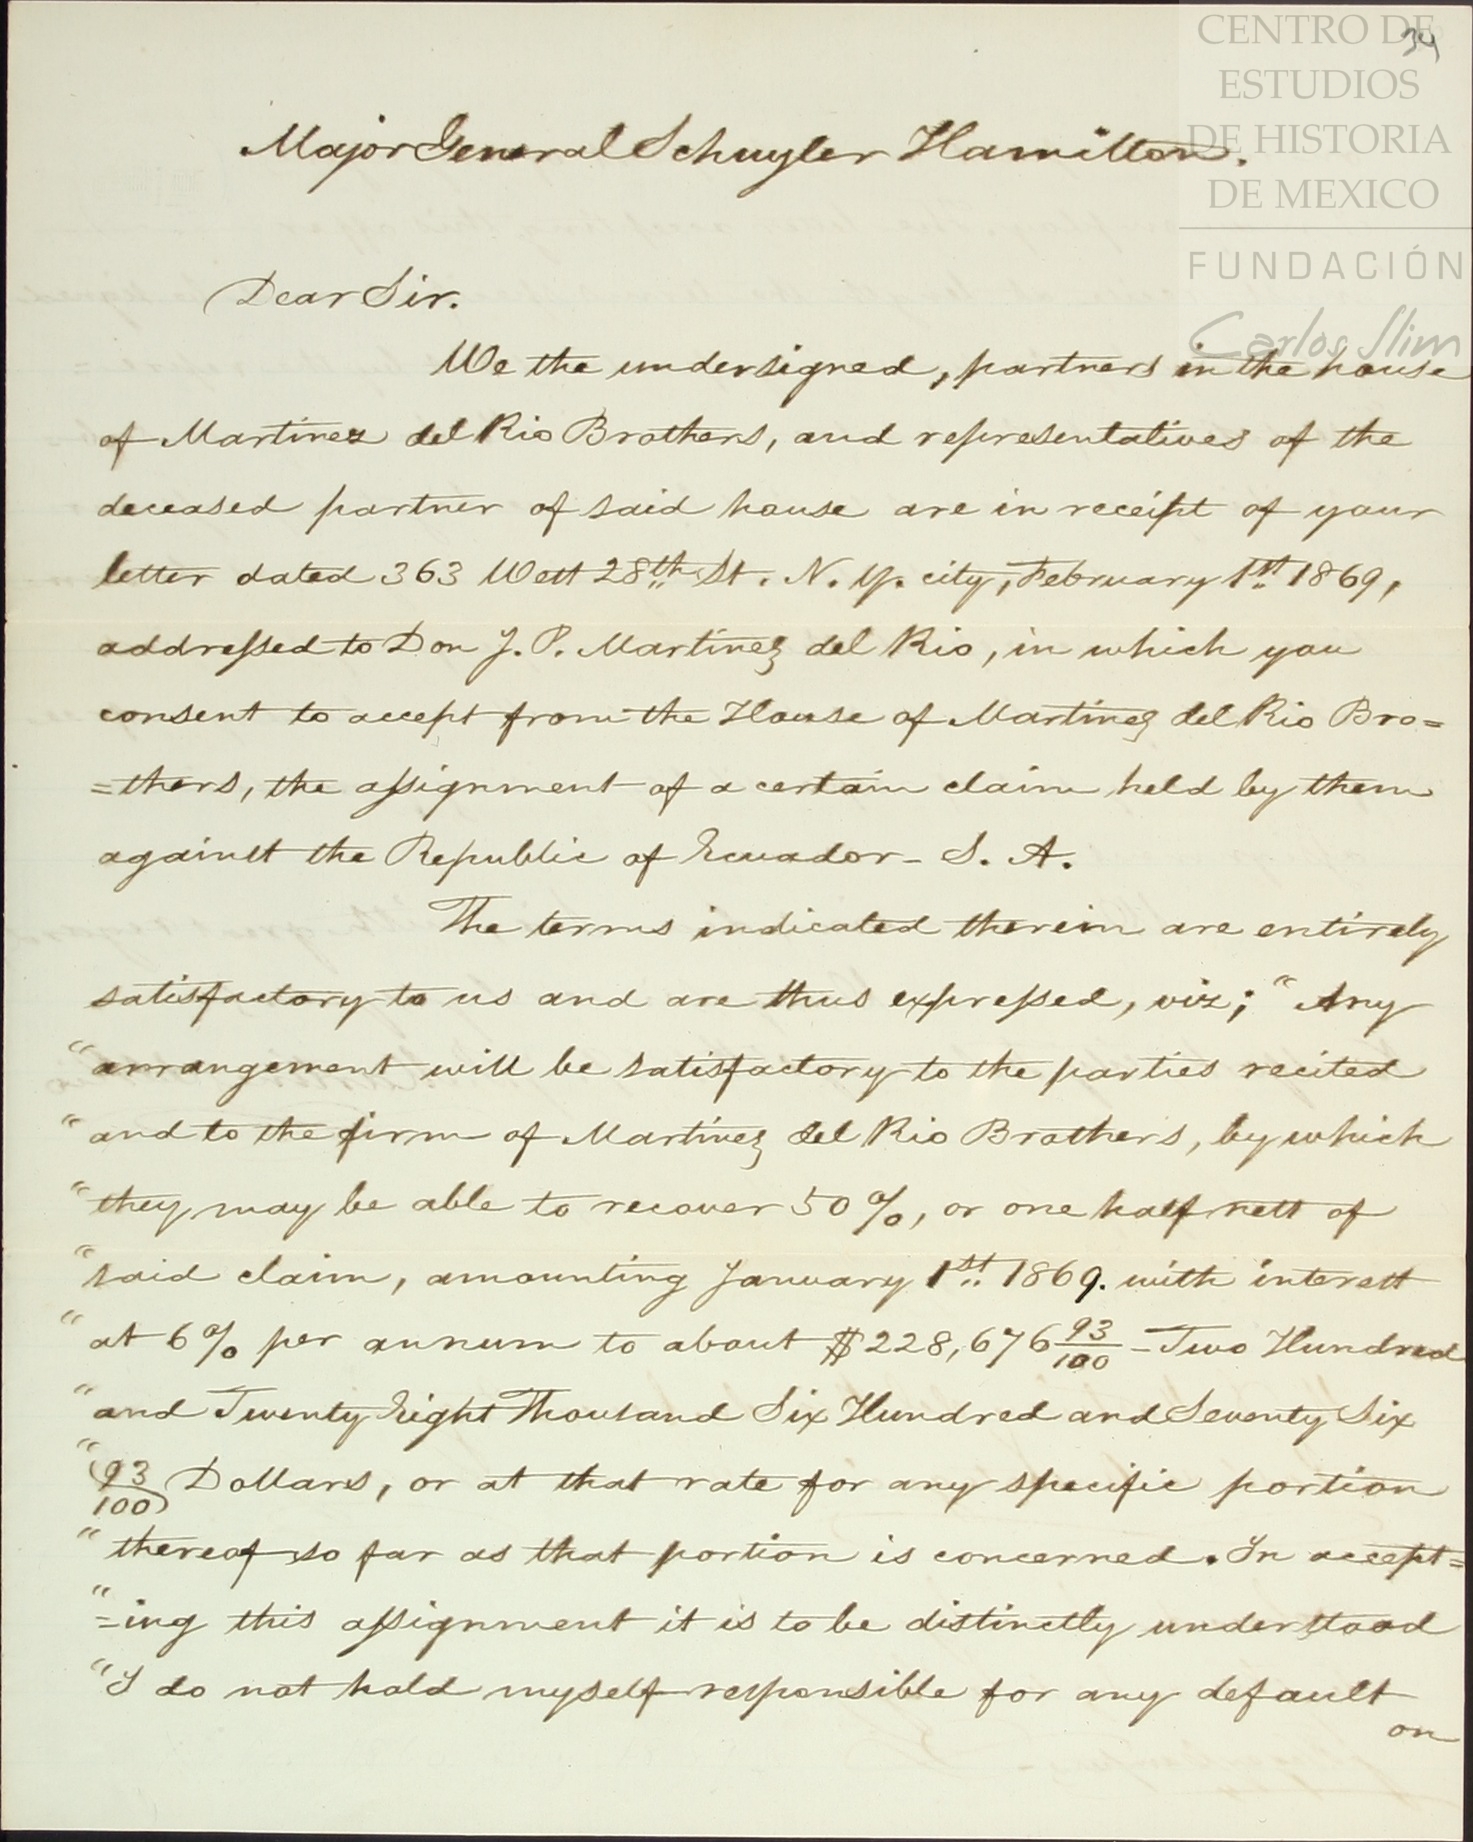 CENTRO DE
ESTUDIOS
DE HISTORIA
DE MEXICO
FUNDACIÓN
Carlos Slim
34
Major General Schuyler Hamilton.
Dear Sir.
We the undersigned, partners in the house
of Martinez del Rio Brothers, and representatives of the
deceased partner of said house are in receipt of your
letter dated 363 West 28th St. N. Y. city, February 1st 1869,
addressed to Don J. P. Martinez del Rio, in which you
consent to accept from the House of Martinez del Rio Bro=
=thers, the assignment of a certain claim held by them
against the Republic of Ecuador - S. A.
The terms indicated therein are entirely
satisfactory to us and are thus expressed, viz; "Any
"arrangement will be satisfactory to the parties recited
"and to the firm of Martinez del Rio Brothers, by which
"they may be able to recover 50%, or one half nett of
"said claim, amounting January 1st 1869. with interest
"at 6% per annum to about $228,676 93/100 - Two Hundred
"and Twenty Eight Thousand Six Hundred and Seventy Six
"(93/100) Dollars, or at that rate for any specific portion
"thereof so far as that portion is concerned. In accept=
"=ing this assignment it is to be distinctly understood
"I do not hold myself responsible for any default
on